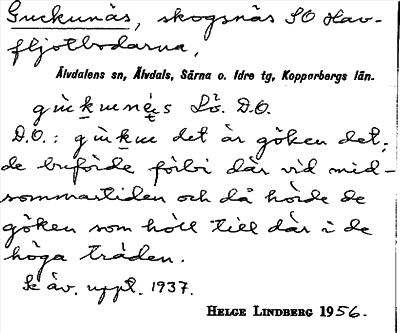 Guckunäs, skogsnäs SO Hav-
fljotbodarna,
Älvdalens sn, Älvdals, Särna o. Idre tg, Kopparbergs län.
D.O.
D.O.: det är göken det;
de buförde förbi där vid mid-
sommartiden och då hörde de
göken som höll till där i de
höga träden.
Se äv. uppt. 1937.
HELGE LINDBERG 1956.